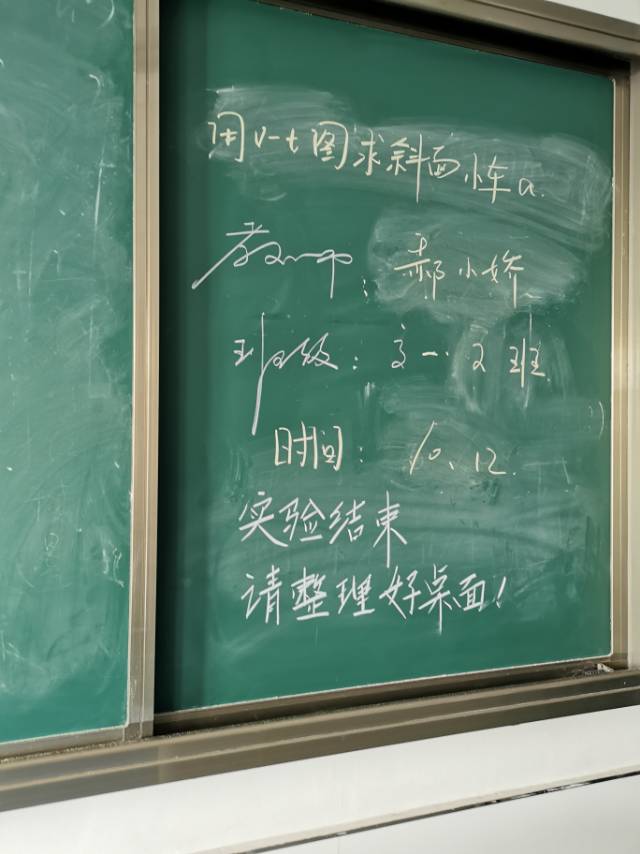 用v-t图求斜面小车a.
教师：郝小娇
班级：高一.2班
时间：10.12.
实验结束
请整理好桌面！